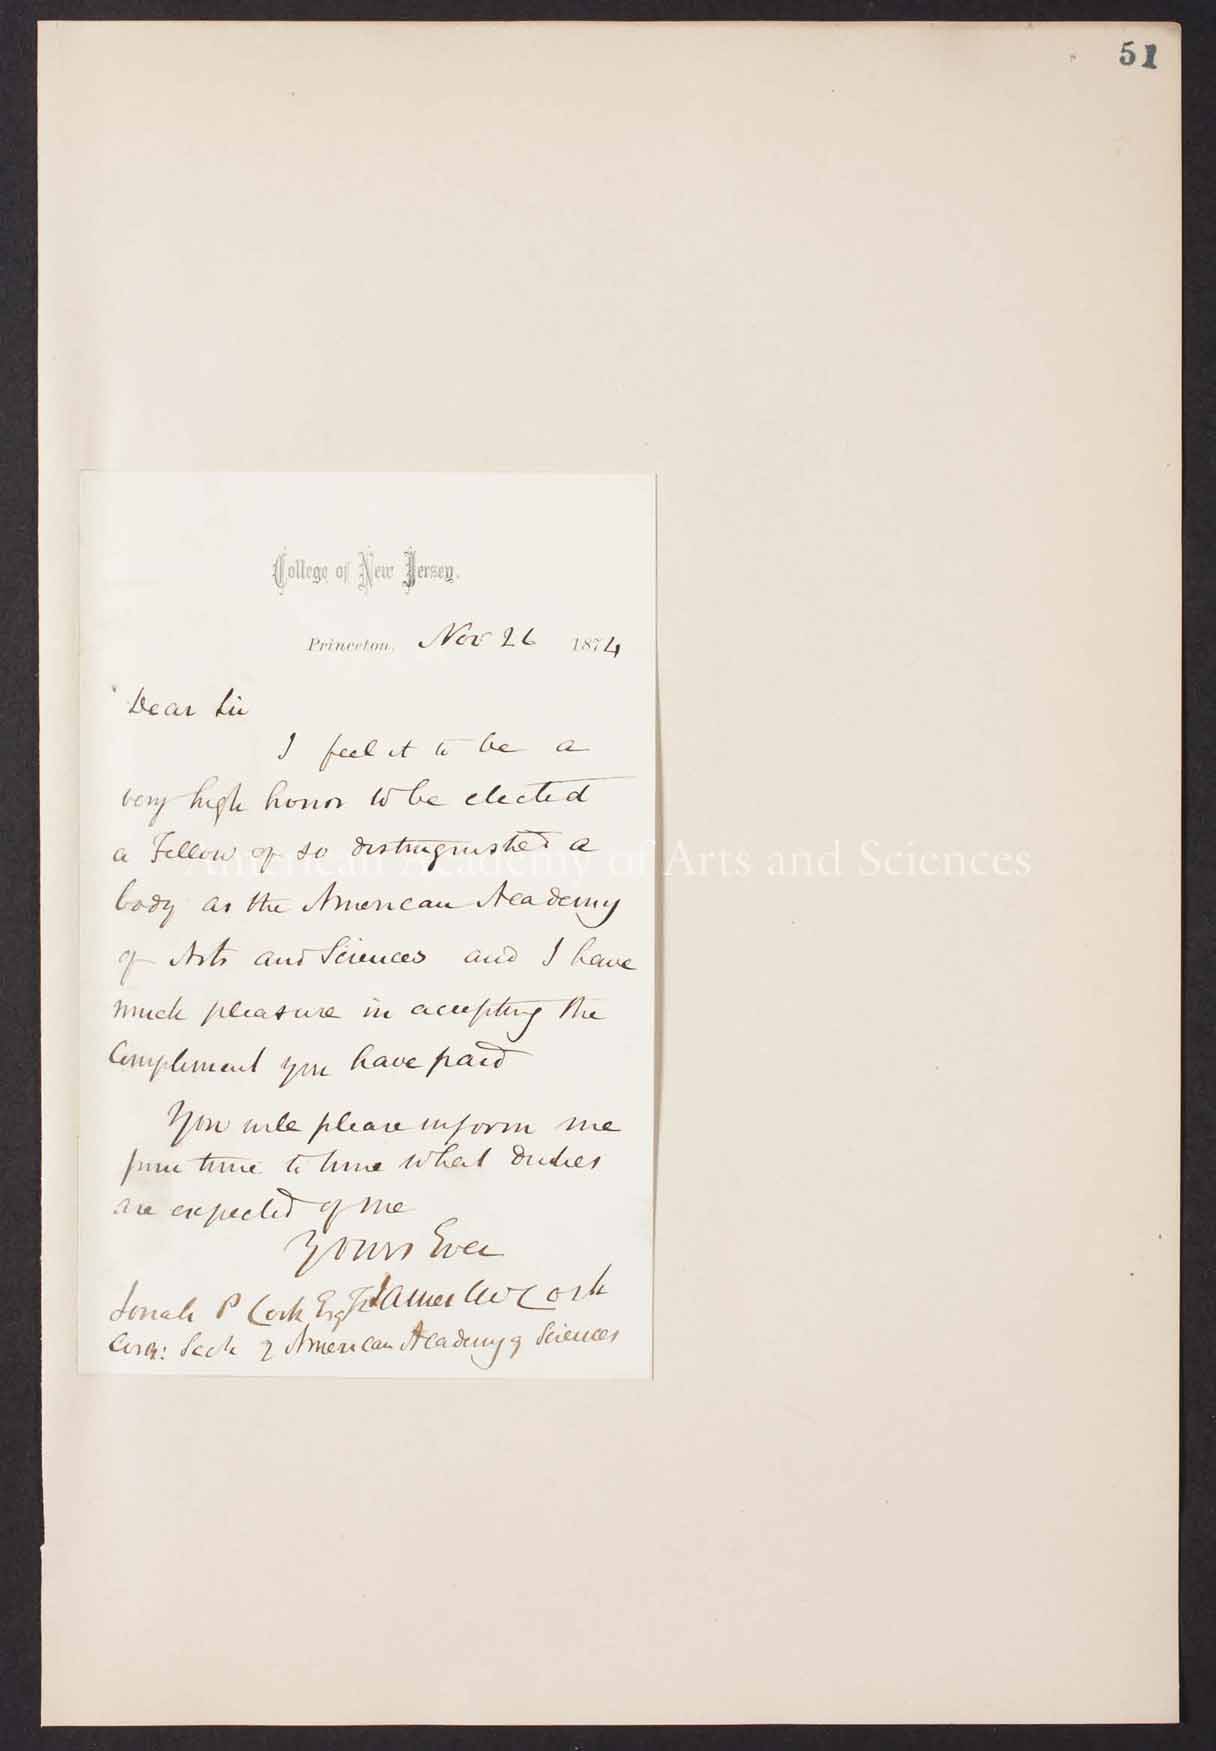 51
College of New Jersey.
Princeton, Nov 26 1874
Dear Sir
I feel it to be a
very high honor to be elected
a Fellow of so distinguished a
body as the American Academy
of Arts and Sciences and I have
much pleasure in accepting the
Compliment you have paid
You will please inform me
from time to time what duties
are expected of me
Yours Ever
James McCosh
Josiah P Cook Esq
Corr: Secy of American Academy of Sciences
American Academy of Arts and Sciences